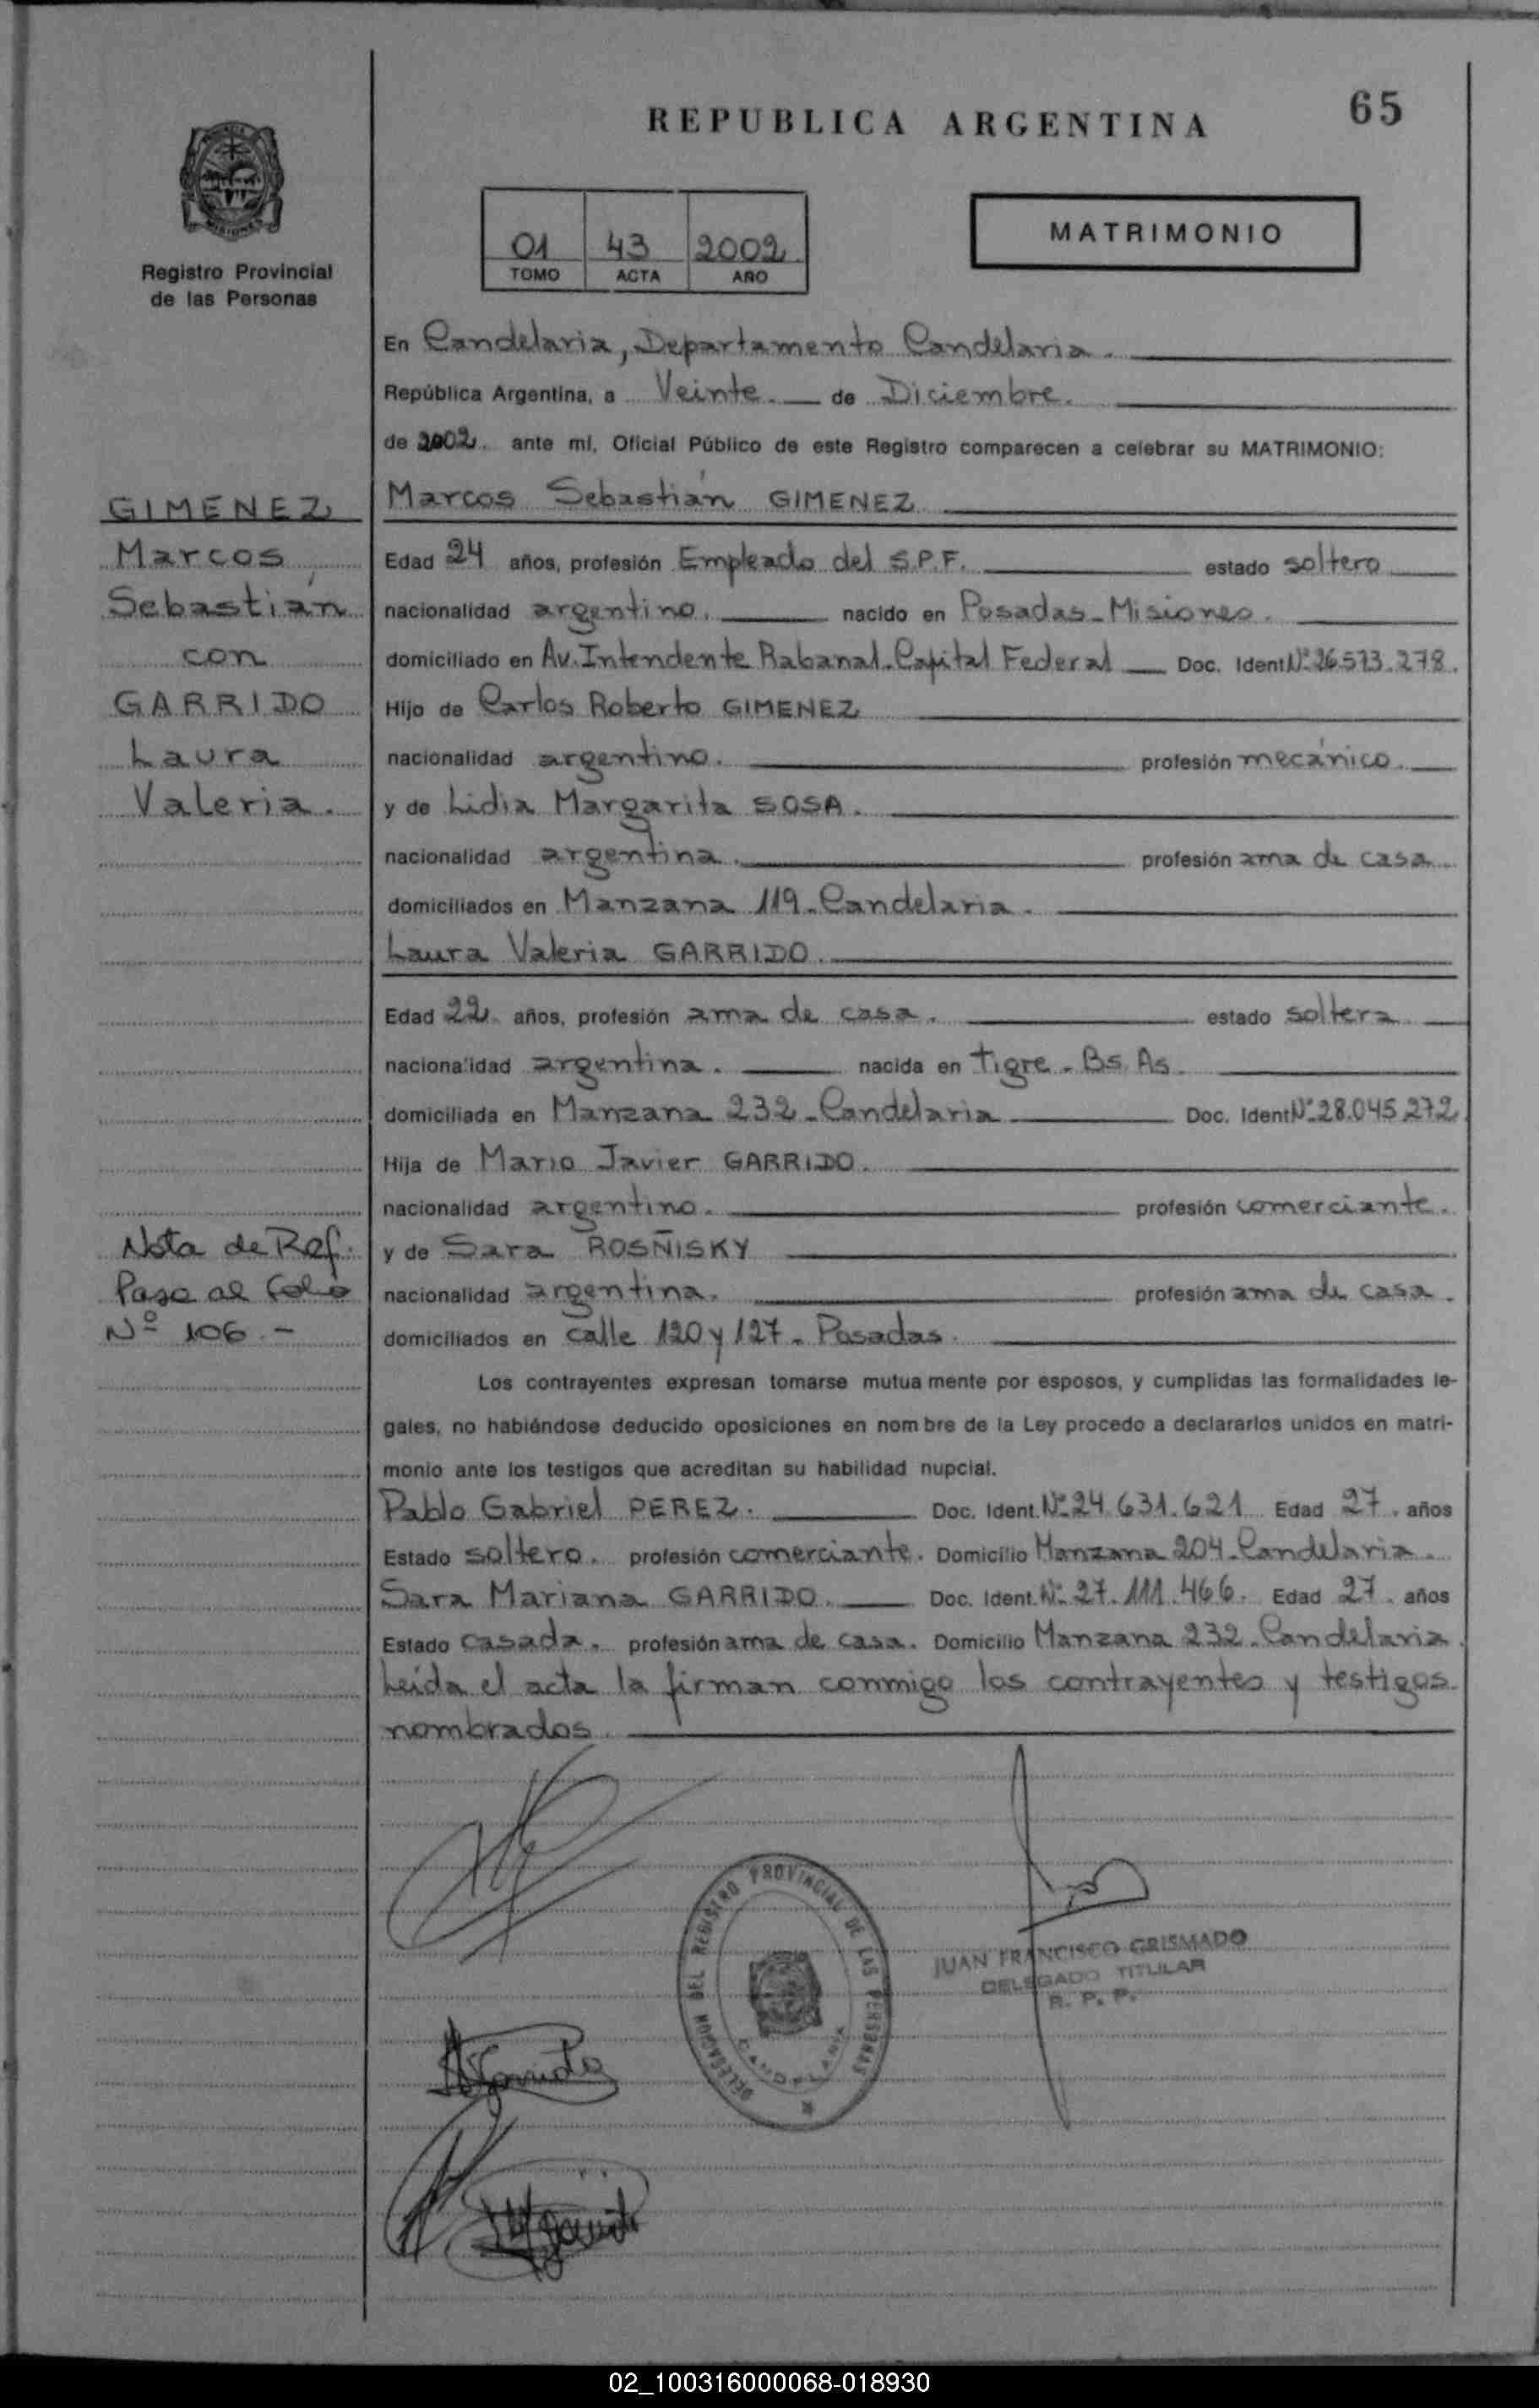 65
REPUBLICA ARGENTINA
MISIONES
Registro Provincial
de las Personas
01 43 2002
TOMO ACTA AÑO
MATRIMONIO
En Candelaria, Departamento Candelaria.
República Argentina, a Veinte. de Diciembre.
de 2002. ante mí, Oficial Público de este Registro comparecen a celebrar su MATRIMONIO:
GIMENEZ
Marcos
Sebastián
con
GARRIDO
Laura
Valeria.
Marcos Sebastián GIMENEZ
Edad 24 años, profesión Empleado del S.P.F. estado soltero
nacionalidad argentino. nacido en Posadas-Misiones.
domiciliado en Av. Intendente Rabanal-Capital Federal Doc. Ident Nº 26.573.278.
Hijo de Carlos Roberto GIMENEZ
nacionalidad argentino. profesión mecánico.
y de Lidia Margarita SOSA.
nacionalidad argentina. profesión ama de casa
domiciliados en Manzana 119-Candelaria.
Laura Valeria GARRIDO.
Edad 22 años, profesión ama de casa. estado soltera
nacionalidad argentina. nacida en Tigre-Bs. As.
domiciliada en Manzana 232-Candelaria Doc. Ident Nº 28.045.272
Hija de Mario Javier GARRIDO.
nacionalidad argentino. profesión comerciante.
y de Sara ROSÑISKY
nacionalidad argentina. profesión ama de casa.
domiciliados en calle 120 y 127-Posadas.
Nota de Ref.
Pasa al folio
Nº 106.-
Los contrayentes expresan tomarse mutua mente por esposos, y cumplidas las formalidades le-
gales, no habiéndose deducido oposiciones en nom bre de la Ley procedo a declararlos unidos en matri-
monio ante los testigos que acreditan su habilidad nupcial.
Pablo Gabriel PEREZ. Doc. Ident. Nº 24.631.621 Edad 27. años
Estado soltero. profesión comerciante. Domicilio Manzana 204-Candelaria.
Sara Mariana GARRIDO. Doc. Ident. Nº 27.111.466. Edad 27. años
Estado casada. profesión ama de casa. Domicilio Manzana 232-Candelaria.
Leída el acta la firman conmigo los contrayentes y testigos
nombrados.
DELEGACION DEL REGISTRO PROVINCIAL DE LAS PERSONAS
CANDELARIA
JUAN FRANCISCO GRISMADO
DELEGADO TITULAR
R. P. P.
02_100316000068-018930